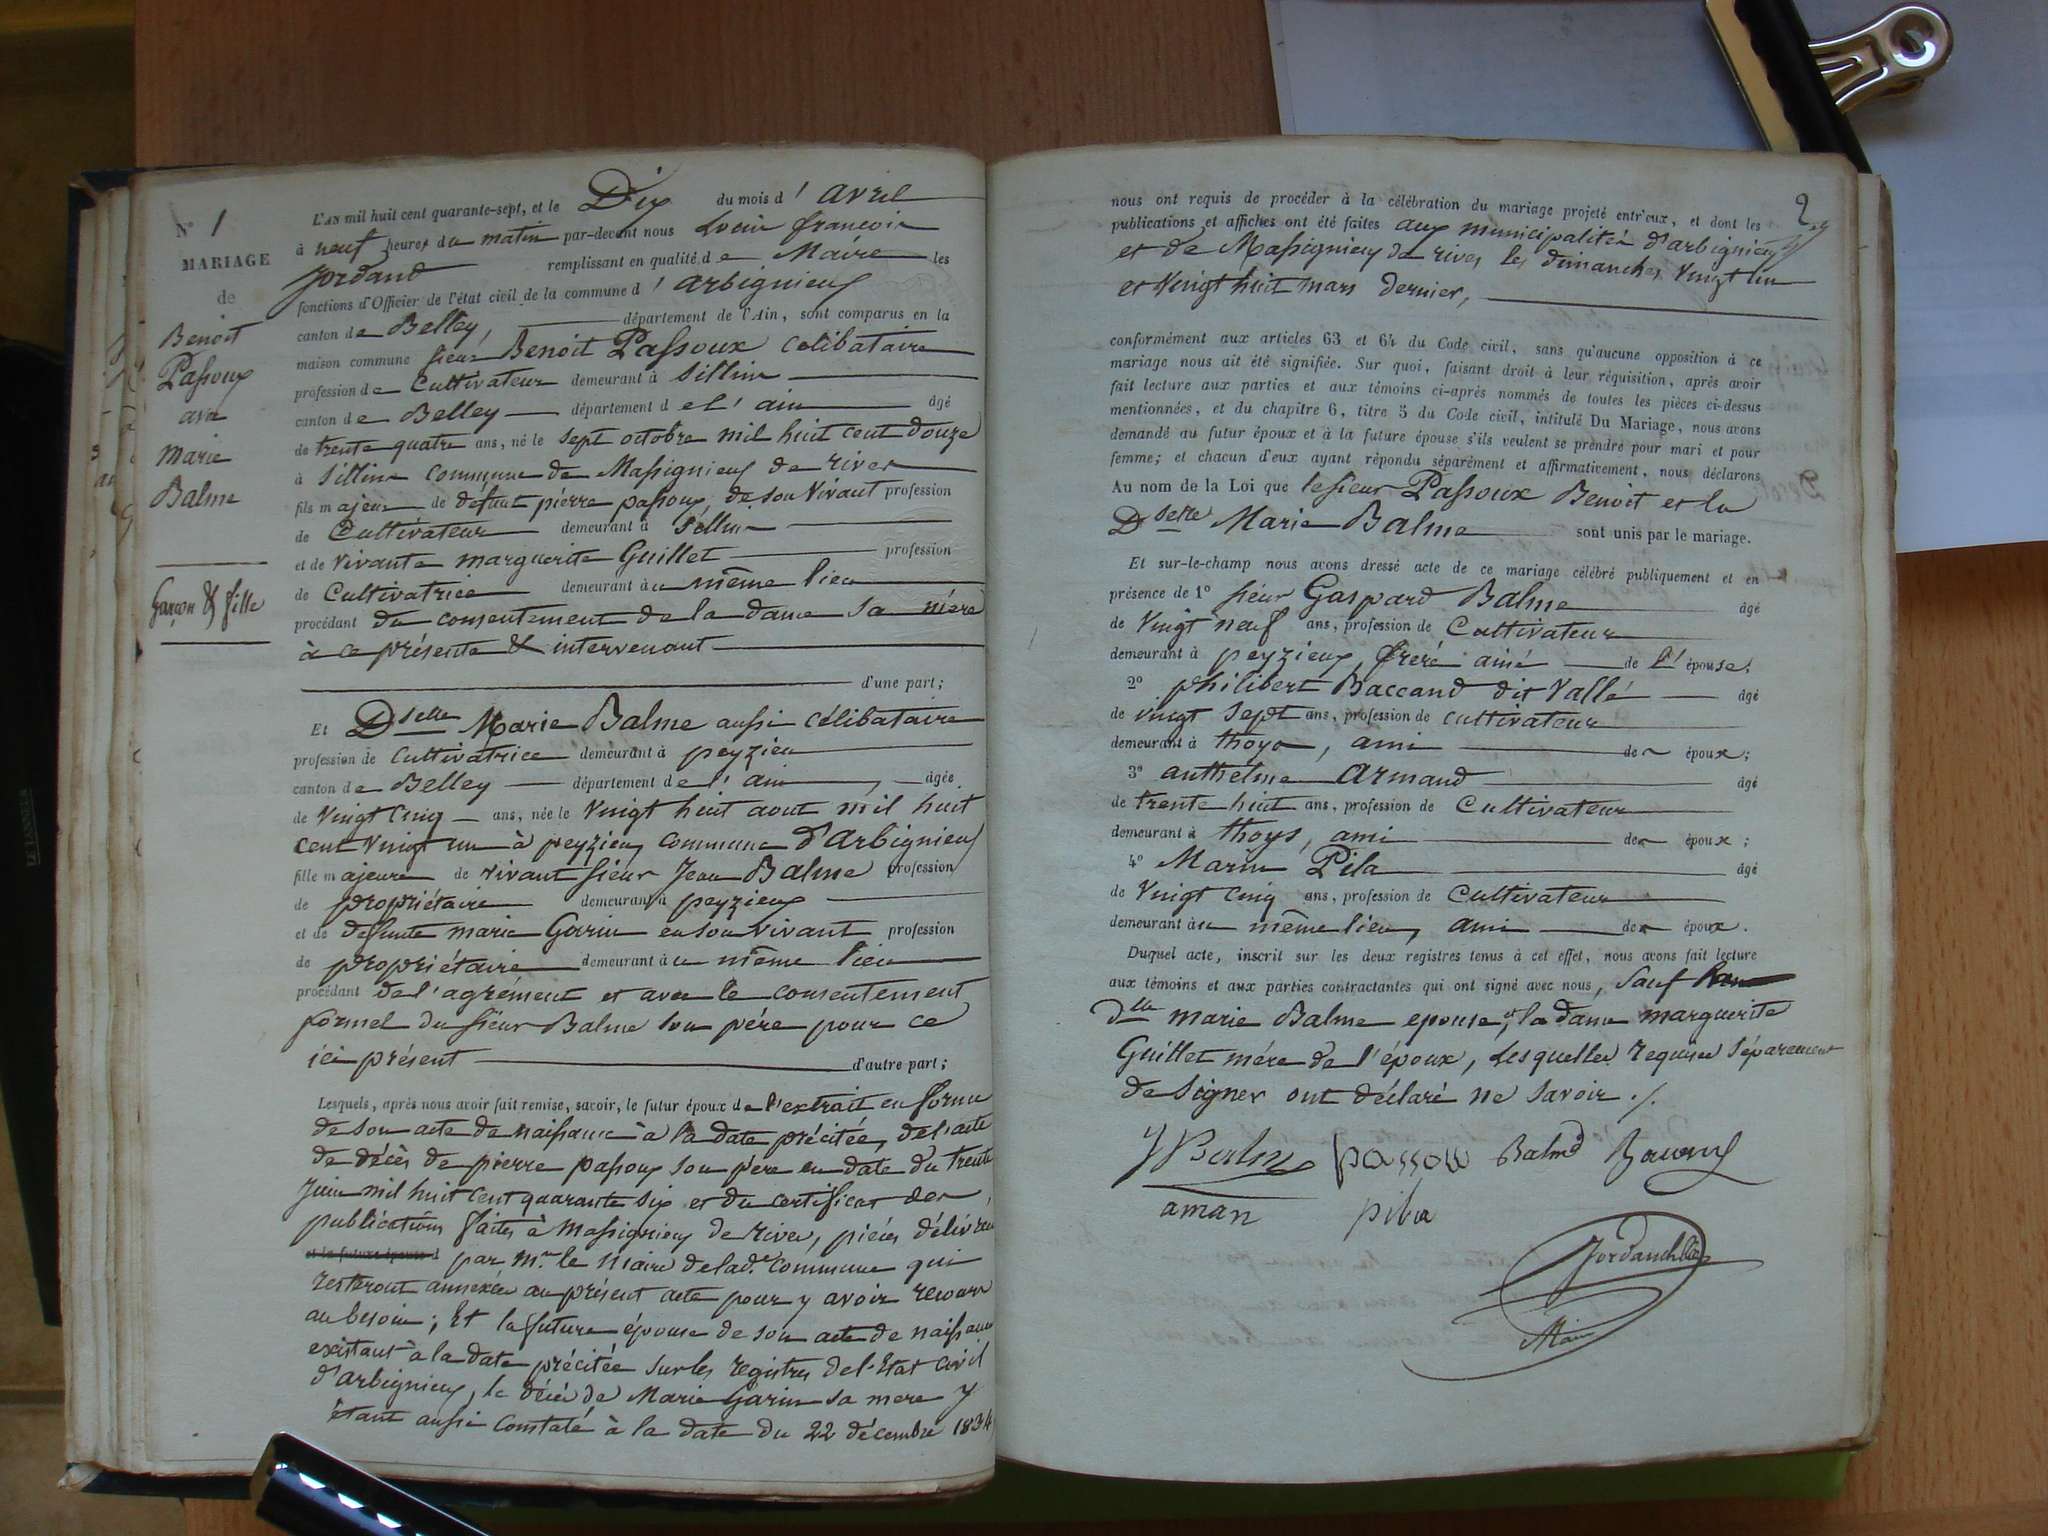 N° 1
MARIAGE
de
Benoit
Passoux
avec
Marie
Balme
Garçon & fille
L'AN mil huit cent quarante-sept, et le Dix du mois d'avril
à neuf heures du matin par-devant nous Louis françois
Jordand remplissant en qualité de Maire les
fonctions d'Officier de l'état civil de la commune d'arbignieux
canton de Belley, département de l'Ain, sont comparus en la
maison commune sieur Benoit Passoux celibataire
profession de Cultivateur demeurant à Sillin
canton de Belley département de l'ain âgé
de trente quatre ans, né le sept octobre mil huit cent douze
à Sillin commune de Massignieux de rives
fils majeur de défunt pierre passoux, de son vivant profession
de Cultivateur demeurant à Sillin
et de vivante marguerite Guillet profession
de Cultivatrice demeurant au même lieu
procédant du consentement de la dame sa mère
à ce présente & intervenant
d'une part;
Et Dselle Marie Balme aussi célibataire
profession de cultivatrice demeurant à peyzieu
canton de Belley département de l'ain, âgée
de Vingt Cinq ans, née le Vingt huit aout mil huit
cent vingt un à peyzieu, commune d'Arbignieux
fille majeure de vivant sieur Jean Balme profession
de propriétaire demeurant à peyzieux
et de defunte marie Garin en son vivant profession
de propriétaire demeurant au même lieu
procédant de l'agrément et avec le consentement
formel du sieur Balme son père pour ce
ici présent d'autre part;
Lesquels, après nous avoir fait remise, savoir, le futur époux de l'extrait en forme
de son acte de naissance à la date précitée, de l'acte
de décès de pierre passoux son père en date du trente
Juin mil huit cent quarante six et du certificat des
publications faites à Massignieu de rives, pièces délivrées
et la future épouse d par Mr le Maire de lade commune qui
resteront annexées au présent acte pour y avoir recours
au besoin; Et la future épouse de son acte de naissance
existant à la date précitée sur les registres de l'Etat civil
d'arbignieux, le décès de Marie Garin sa mere y
étant aussi constaté à la date du 22 décembre 1834
2
nous ont requis de procéder à la célébration du mariage projeté entr'eux, et dont les
publications et affiches ont été faites aux municipalités d'arbignieu
et de Massignieu de rives les dimanches vingt un
et Vingt huit mars dernier,
conformément aux articles 63 et 64 du Code civil, sans qu'aucune opposition à ce
mariage nous ait été signifiée. Sur quoi, faisant droit à leur réquisition, après avoir
fait lecture aux parties et aux témoins ci-après nommés de toutes les pièces ci-dessus
mentionnées, et du chapitre 6, titre 5 du Code civil, intitulé Du Mariage, nous avons
demandé au futur époux et à la future épouse s'ils veulent se prendre pour mari et pour
femme; et chacun d'eux ayant répondu séparément et affirmativement, nous déclarons
Au nom de la Loi que le sieur Passoux Benoit et la
Dselle Marie Balme sont unis par le mariage.
Et sur-le-champ nous avons dressé acte de ce mariage célébré publiquement et en
présence de 1° sieur Gaspard Balme âgé
de Vingt neuf ans, profession de Cultivateur
demeurant à peyzieux, frère ainé de l'épouse;
2° philibert Baccand dit Vallé âgé
de vingt sept ans, profession de cultivateur
demeurant à thoys, ami de époux;
3° anthelme Armand âgé
de trente huit ans, profession de Cultivateur
demeurant à thoys, ami de époux;
4° Marin Pila âgé
de Vingt cinq ans, profession de Cultivateur
demeurant au même lieu, ami de époux.
Duquel acte, inscrit sur les deux registres tenus à cet effet, nous avons fait lecture
aux témoins et aux parties contractantes qui ont signé avec nous, Sauf
Dlle marie Balme epouse, et la dame marguerite
Guillet mère de l'époux, lesquelles requises séparement
de signer ont déclaré ne savoir ./.
J Balme passou Balme
aman pila
Jordand
Maire